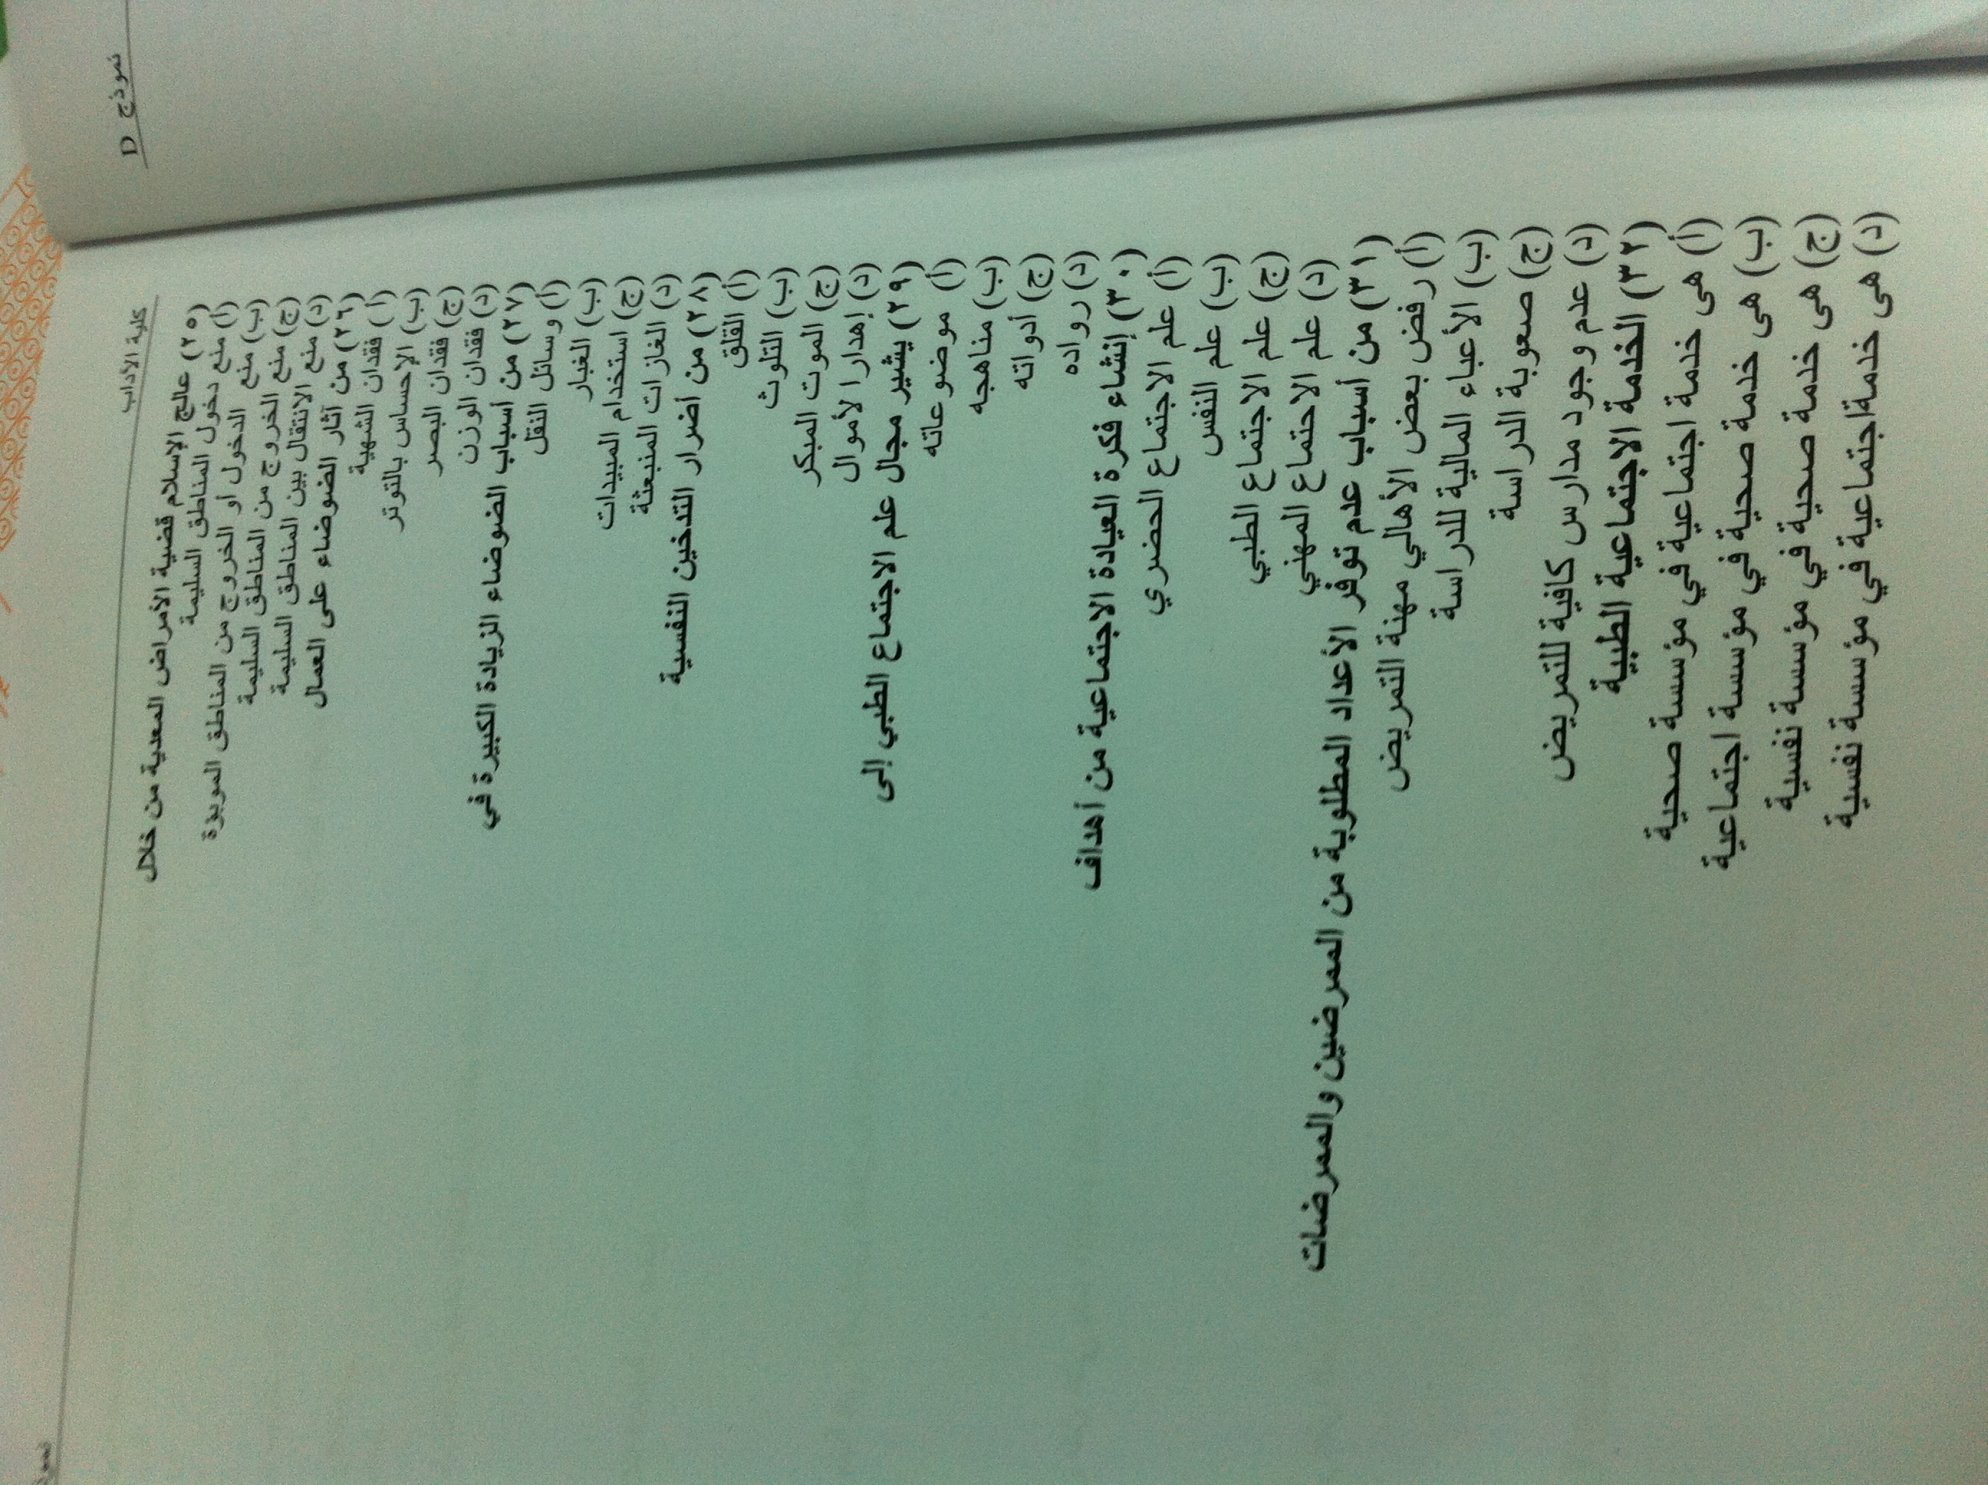 نموذج D
كلية الآداب
(٢٥) عالج الإسلام قضية الأمراض المعدية من خلال
(أ) منع دخول المناطق السليمة
(ب) منع الدخول أو الخروج من المناطق الموبوءة
(ج) منع الخروج من المناطق السليمة
(د) منع الانتقال بين المناطق السليمة
(٢٦) من آثار الضوضاء على العمال
(أ) فقدان الشهية
(ب) الإحساس بالتوتر
(ج) فقدان البصر
(د) فقدان الوزن
(٢٧) من أسباب الضوضاء الزيادة الكبيرة في
(أ) وسائل النقل
(ب) الغبار
(ج) استخدام المبيدات
(د) الغازات المنبعثة
(٢٨) من أضرار التدخين النفسية
(أ) القلق
(ب) التلوث
(ج) الموت المبكر
(د) إهدار الأموال
(٢٩) يشير مجال علم الاجتماع الطبي إلى
(أ) موضوعاته
(ب) مناهجه
(ج) أدواته
(د) رواده
(٣٠) إنشاء فكرة العيادة الاجتماعية من أهداف
(أ) علم الاجتماع الحضري
(ب) علم النفس
(ج) علم الاجتماع الطبي
(د) علم الاجتماع المهني
(٣١) من أسباب عدم توفر الأعداد المطلوبة من الممرضين والممرضات
(أ) رفض بعض الأهالي مهنة التمريض
(ب) الأعباء المالية للدراسة
(ج) صعوبة الدراسة
(د) عدم وجود مدارس كافية للتمريض
(٣٢) الخدمة الاجتماعية الطبية
(أ) هى خدمة اجتماعية في مؤسسة صحية
(ب) هى خدمة صحية في مؤسسة اجتماعية
(ج) هى خدمة صحية في مؤسسة نفسية
(د) هى خدمة اجتماعية في مؤسسة نفسية